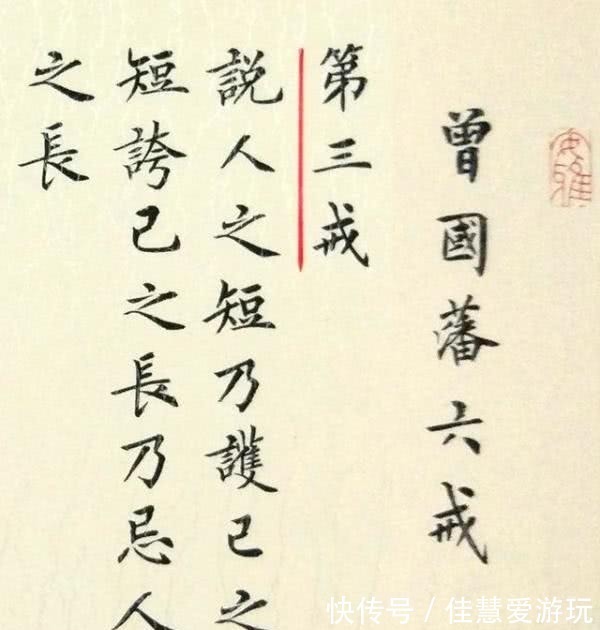 曾國藩六戒
第三戒
説人之短乃護己之
短誇己之長乃忌人
之長
快传号 / 佳慧爱游玩